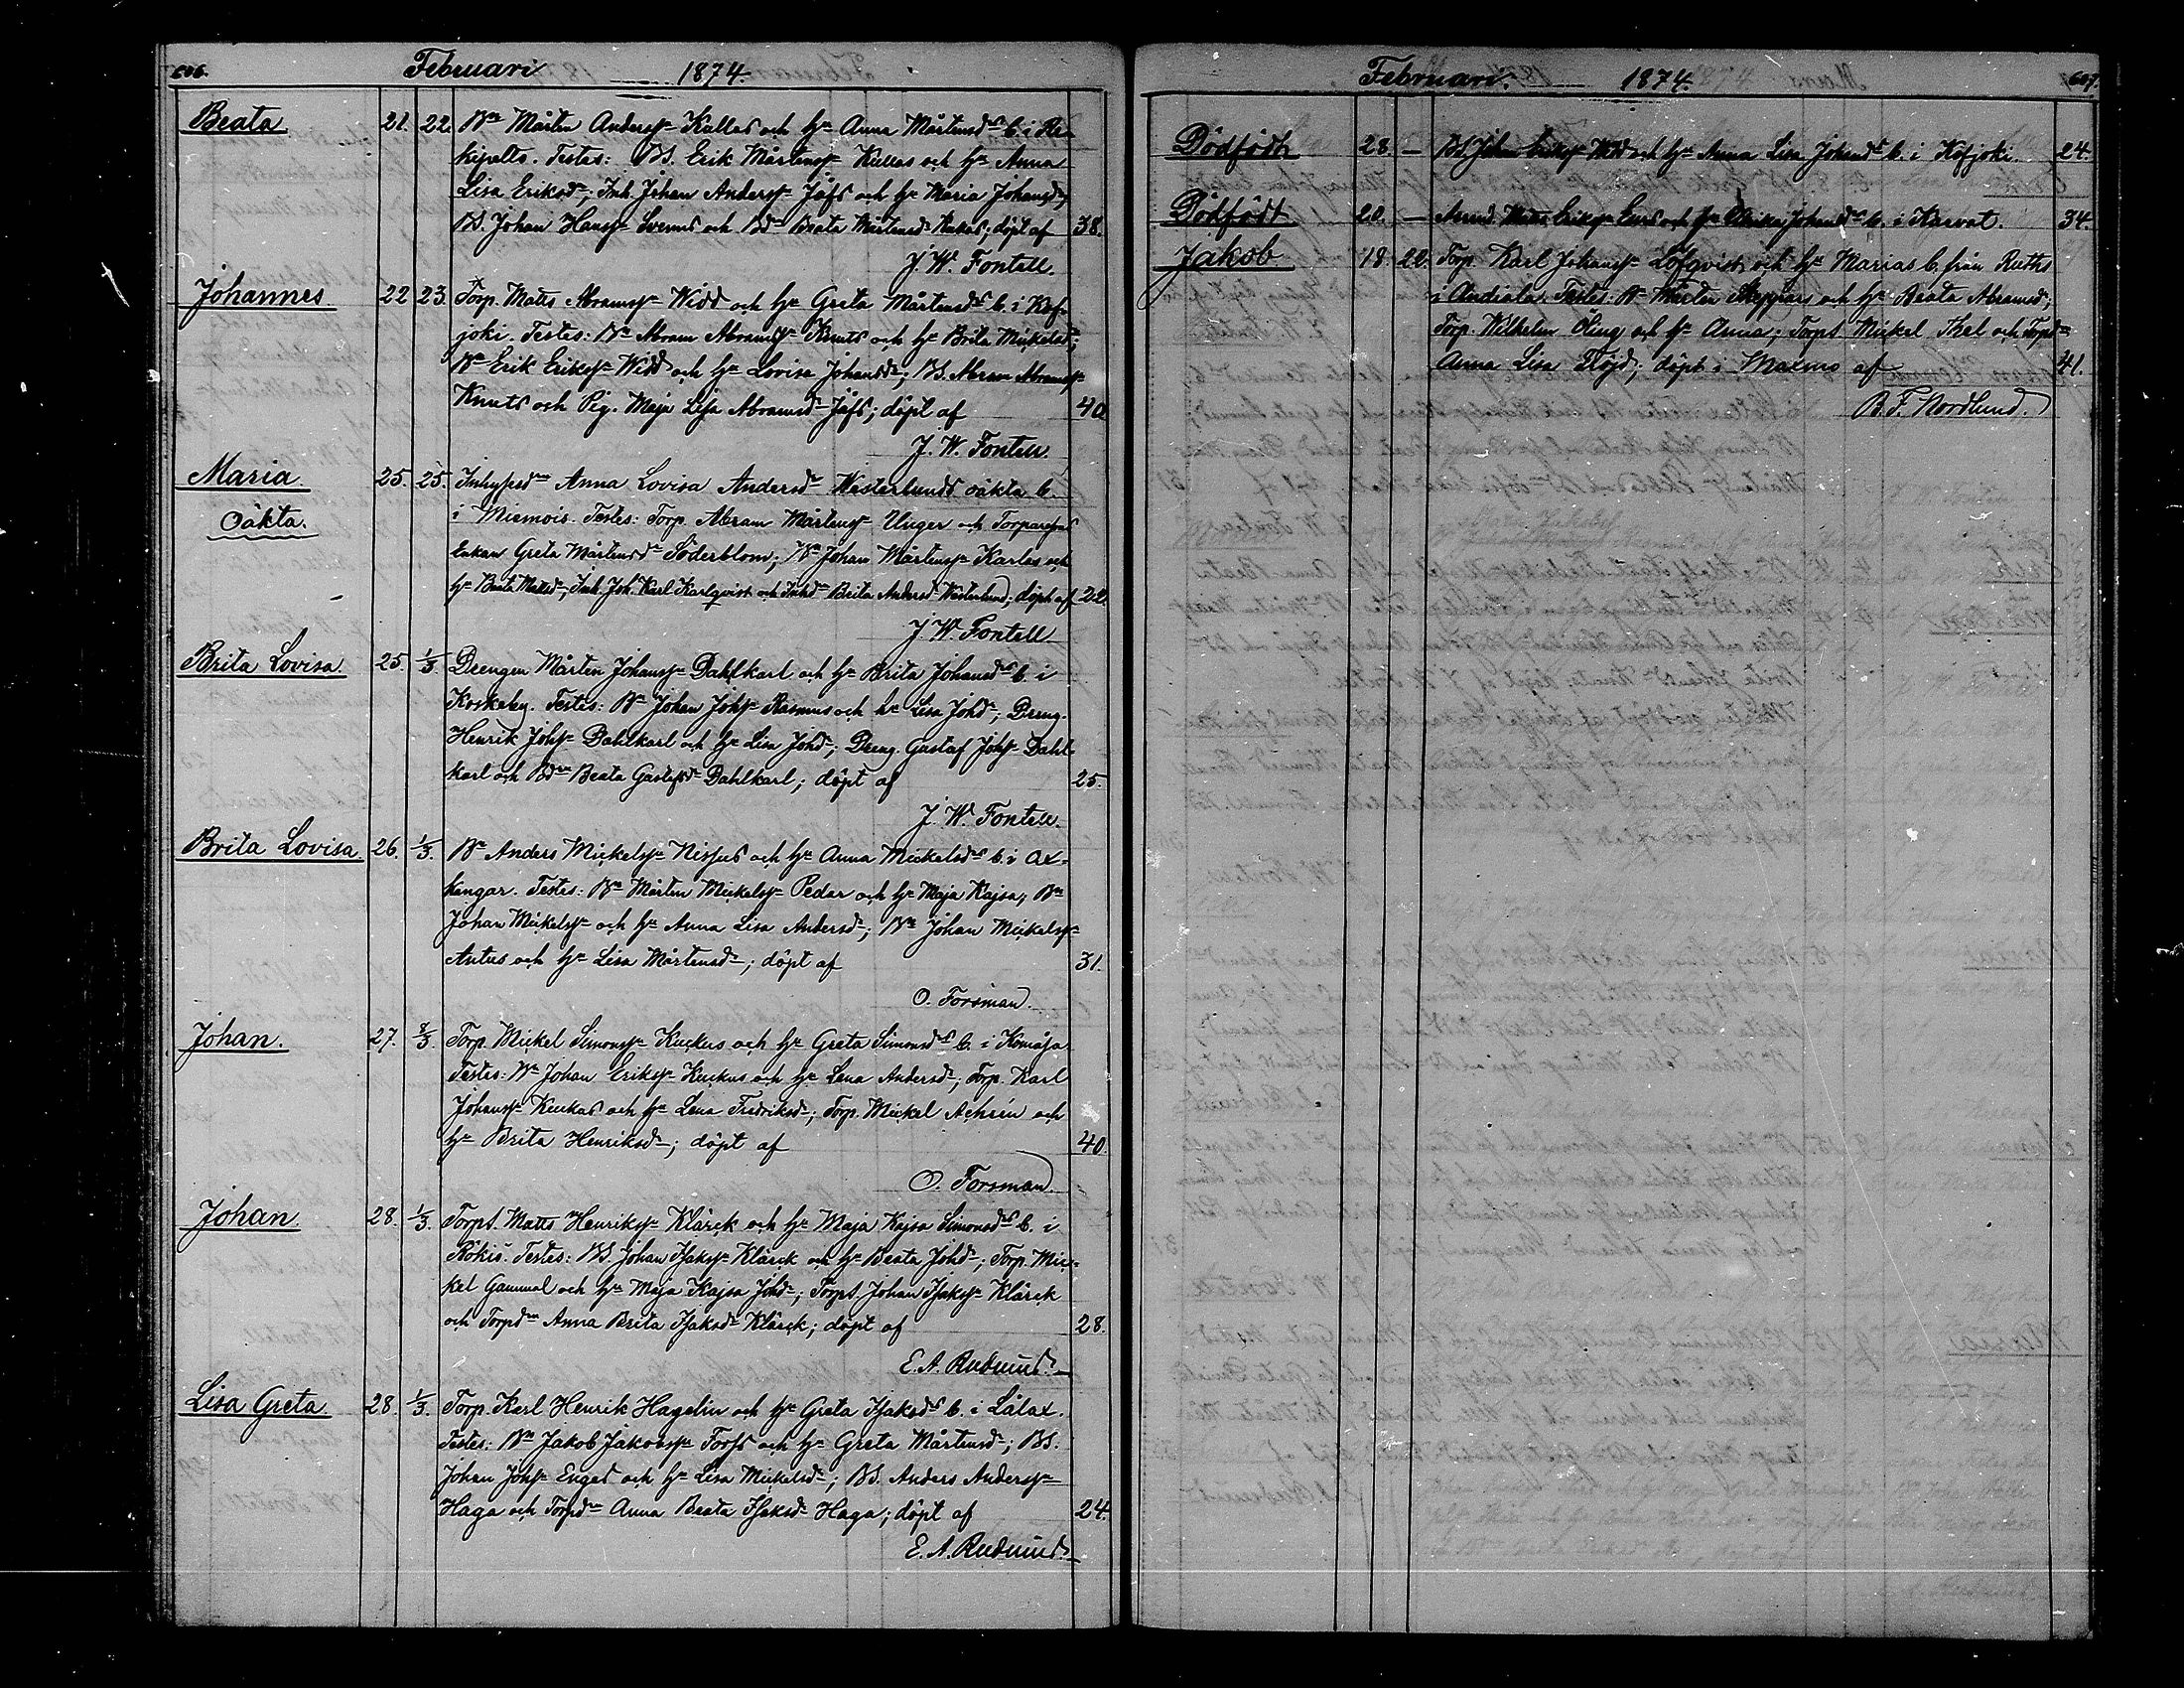 606. Februari 1874.
Beata 21. 22. Bn Mårten Anderss. Kullas och h. Anna Mårtensds b. i Re-
kipelto. Testes: BS. Erik Mårtenss. Kullas och h. Anna
Lisa Eriksd.; Inh. Johan Anderss. Jåfs och h. Maria Johansd.;
BS. Johan Hanss. Svenns och Bd. Beata Mårtensd. Kukas; döpt af 38.
J. W. Fontell.
Johannes 22 23. Torp. Matts Abramss. Widd och h. Greta Mårtensds b. i Kof-
joki. Testes: Bn Abram Abramss. Knuts och h. Brita Mickelsd.;
Bn Erik Erikss. Widd och h. Lovisa Johansd.; BS. Abram Abramss.
Knuts och Pig. Maja Lisa Abramsd. Jåfs; döpt af 40
J. W. Fontell.
Maria 25. 25. Inhysesdn Anna Lovisa Andersd. Westerlunds oäkta b.
Oäkta. i Miemois. Testes: Torp. Abram Mårtenss. Unger och Torpares
Enkan Greta Mårtensd. Söderblom; Bn Johan Mårtenss. Karlas och
h. Beata Mattsd.; Inh. Joh. Karl Karlqvist och Inhd. Brita Andersd. Westerlund; döpt af 22.
J. W. Fontell
Brita Lovisa 25. 1/3. Drengen Mårten Johanss. Dahlkarl och h. Brita Johansds b. i
Koskeby. Testes: Bn Johan Johss. Rasmus och h. Lisa Johd.; Dreng.
Henrik Johss. Dahlkarl och h. Lisa Johd.; Dreng. Gustaf Johss. Dahl-
karl och Bdn Beata Gustafsd. Dahlkarl; döpt af 25.
J. W. Fontell.
Brita Lovisa. 26. 1/3. Bn Anders Mickelss. Nissus och h. Anna Mickelsds b. i Ox-
kangar. Testes: Bn Mårten Mickelss. Pedar och h. Maja Kajsa; Bn
Johan Mickelss. och h. Anna Lisa Andersd.; Bn Johan Mickelss.
Antus och h. Lisa Mårtensd.; döpt af 31.
O. Forsman.
Johan. 27. 8/3. Torp. Mickel Simonss. Kuckus och h. Greta Simonsds b. i Komåsa
Testes: Bn Johan Erikss. Kuckus och h. Lena Andersd.; Torp. Karl
Johanss. Kuckus och h. Lena Fredriksd.; Torp. Mickel Achrén och
h. Brita Henriksd.; döpt af 40.
O. Forsman.
Johan. 28. 1/3. Torps. Matts Henrikss. Klärck och h. Maja Kajsa Simonsds b. i
Rökiö. Testes: BS. Johan Isakss. Klärck och h. Beata Johd.; Torp. Mic-
kel Gammal och h. Maja Kajsa Johd.; Torps. Johan Isakss. Klärck
och Torpdn Anna Brita Isaksd. Klärck; döpt af 28.
E. A. Rudnäs.
Lisa Greta. 28. 1/3. Torp. Karl Henrik Hagelin och h. Greta Isaksds b. i Lålax.
Testes: Bn Jakob Jakobss. Torfs och h. Greta Mårtensd.; BS.
Johan Johss. Enges och h. Lisa Mickelsd.; BS. Anders Anderss.
Haga och Torpd. Anna Beata Isaksd. Haga; döpt af 24.
E. A. Rudnäs.
Februari. 1874. 607.
Dödfödt 28. — BS. Johan Erikss. Widd och h. Anna Lisa Johansds b. i Kofjoki. 24.
Dödfödt 20. — Matts Erikss. och h. Ulrika Johansds b. i Karvat. 34.
Jakob 18. 22. Torp. Karl Johanss. Löfqvist och h. Marias b. från Ruths
i Andiala. Testes: Bn Mårten Skeppars och h. Beata Abramsd.;
Torp. Wilhelm Öling och h. Anna; Torps. Mickel Thel och Torpd.
Anna Lisa Flöjd; döpt i Maxmo af 41.
B. F. Nordlund.